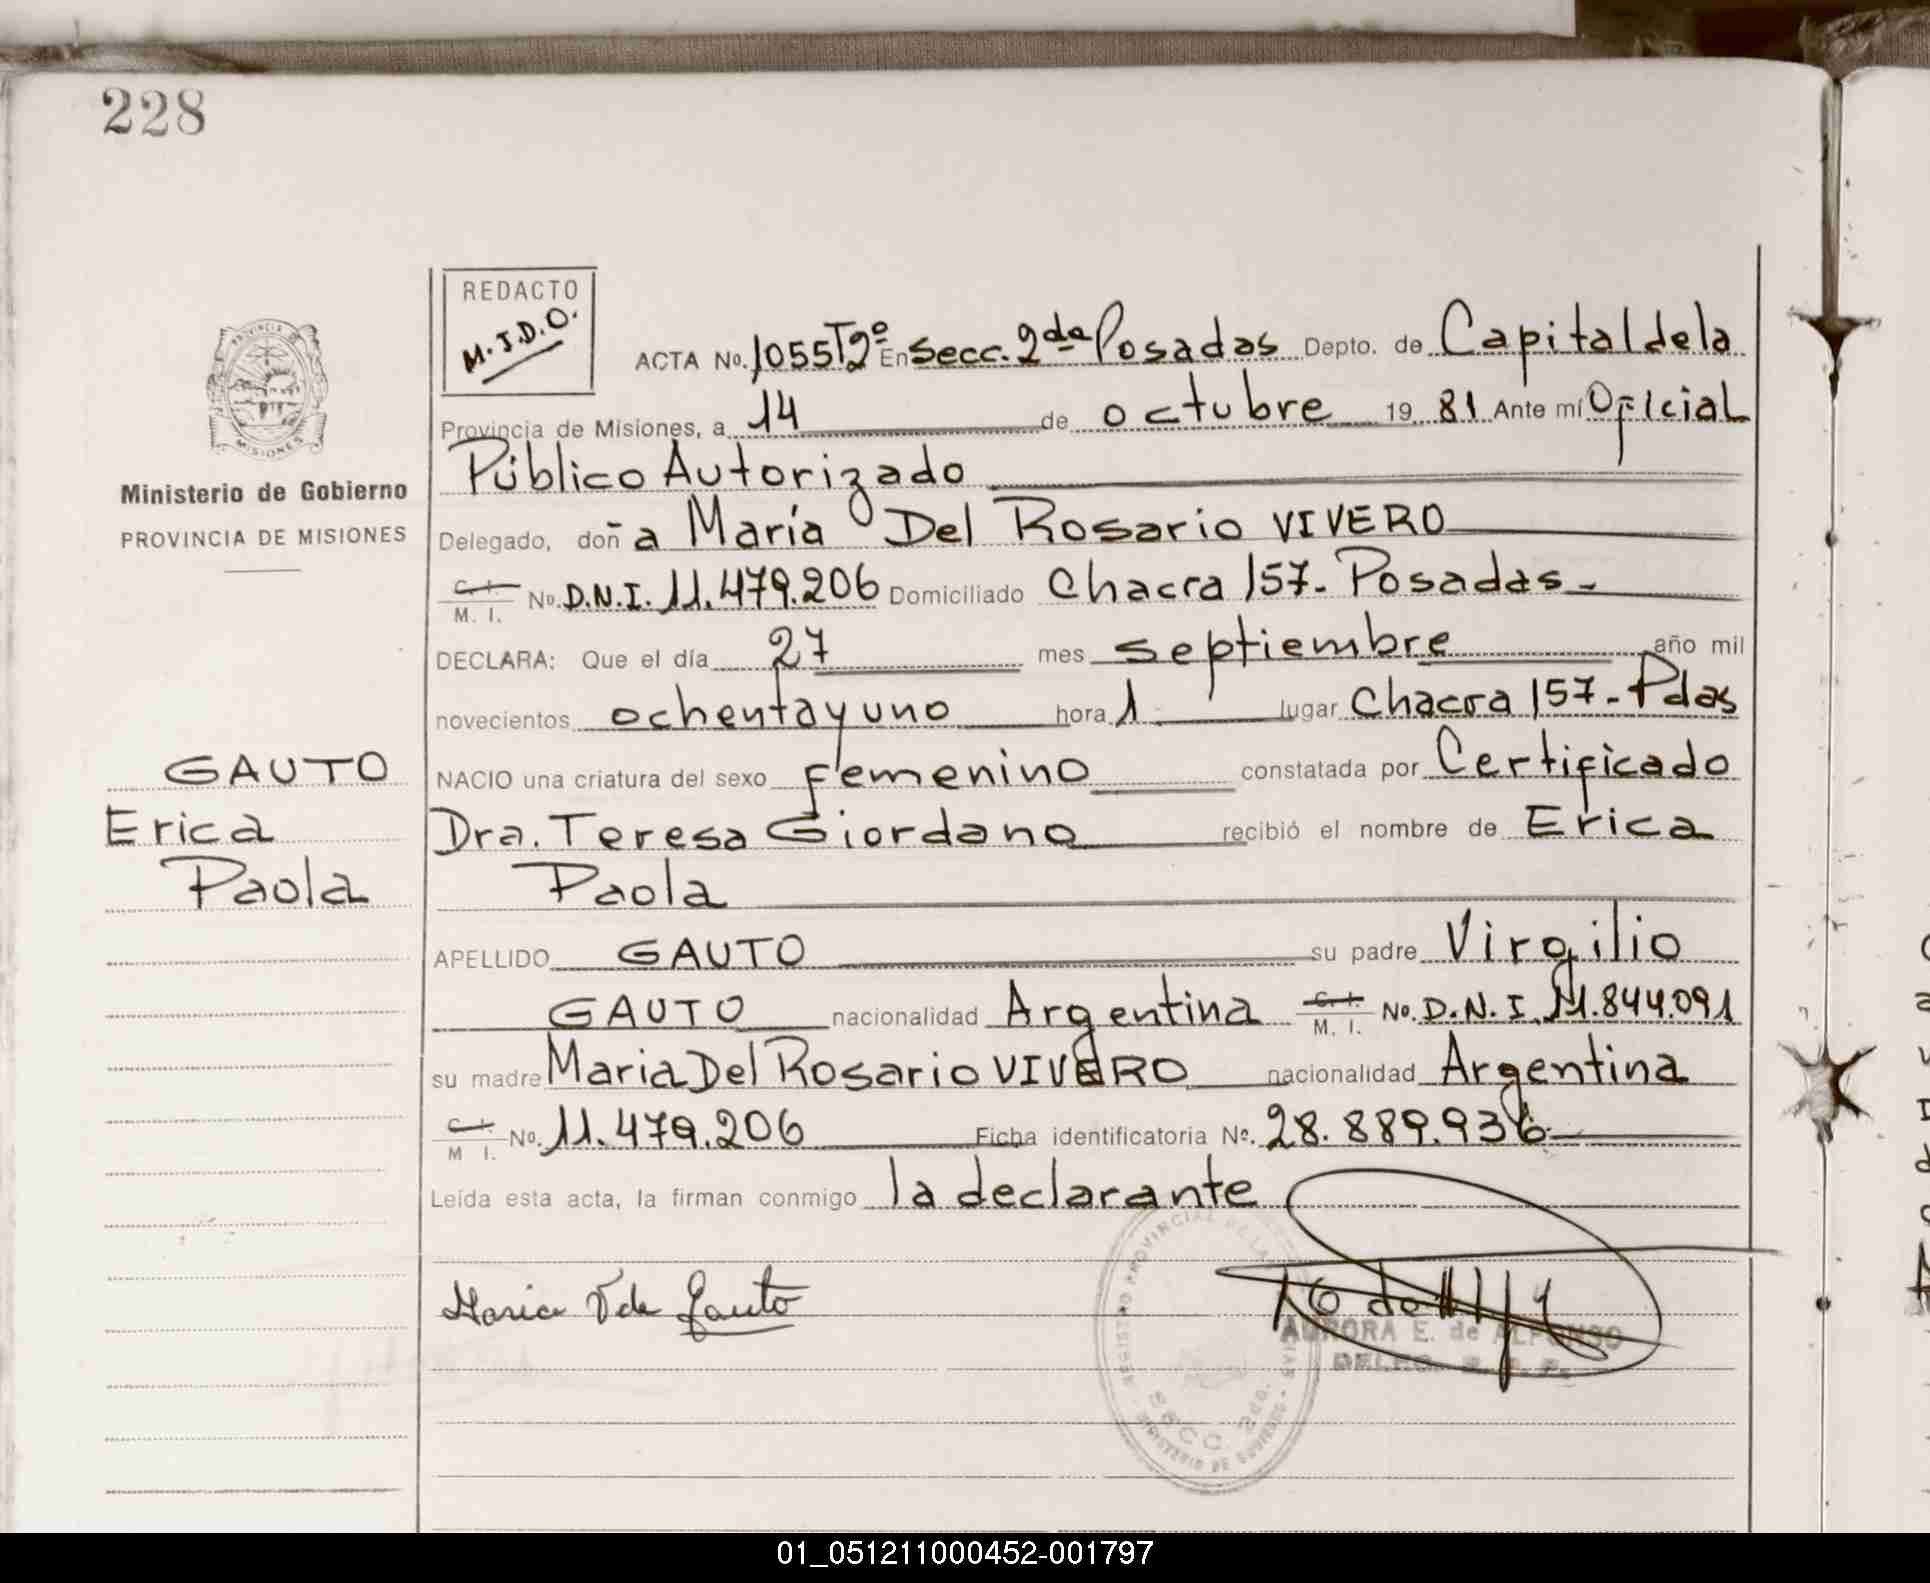 228
REDACTO
M.J.D.O.
ACTA No. 1055 T2º En Secc. 2da Posadas Depto. de Capital de la
Provincia de Misiones, a 14 de octubre 19 81 Ante mí Oficial
Público Autorizado
Delegado, doñ a María Del Rosario VIVERO
C. I.
M. I. No. D.N.I. 11.479.206 Domiciliado Chacra 157- Posadas-
DECLARA: Que el día 27 mes septiembre año mil
novecientos ochenta y uno hora 1 lugar Chacra 157- Pdas
NACIO una criatura del sexo femenino constatada por Certificado
Dra. Teresa Giordano recibió el nombre de Erica
Paola
APELLIDO GAUTO su padre Virgilio
GAUTO nacionalidad Argentina C. I. M. I. No. D.N.I. 11.844.091
su madre Maria Del Rosario VIVERO nacionalidad Argentina
C. I. M I. No. 11.479.206 Ficha identificatoria Nº. 28.889.936
Leída esta acta, la firman conmigo la declarante
Maria V de Gauto
AURORA E. de ALFONSO
DELEG.
REGISTRO PROVINCIAL DE LAS
SECC 2da.
MINISTERIO DE GOBIERNO
PROVINCIA DE
MISIONES
Ministerio de Gobierno
PROVINCIA DE MISIONES
GAUTO
Erica
Paola
01_051211000452-001797